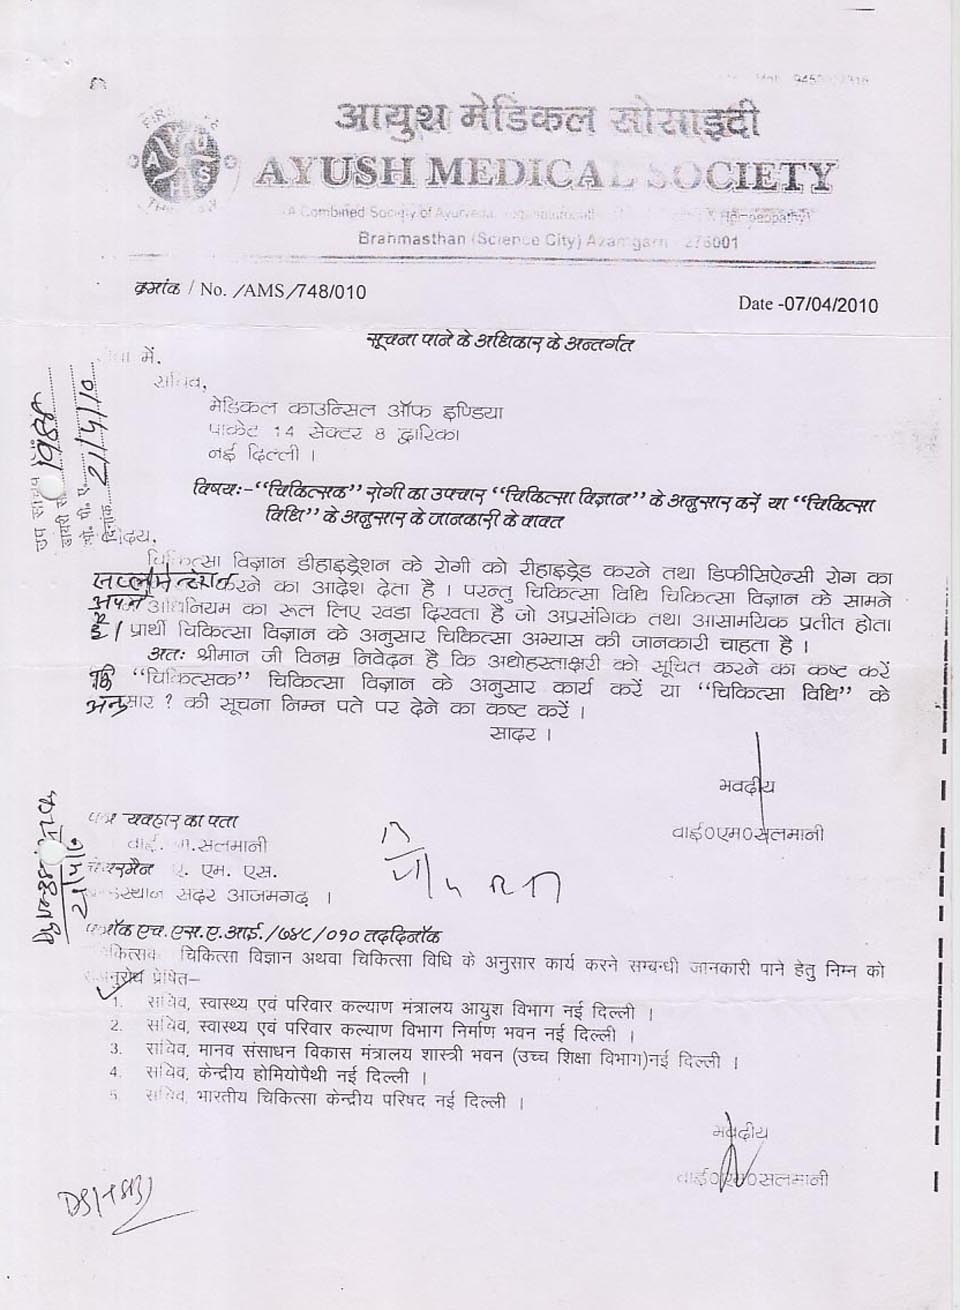 आयुश मेडिकल सोसाइटी
AYUSH MEDICAL SOCIETY
(A Combined Society of Ayurveda, & Homoeopathy)
Brahmasthan (Science City) Azamgarh - 276001
क्रमांक / No. /AMS/748/010
Date -07/04/2010
सूचना पाने के अधिकार के अन्तर्गत
में.
सचिव,
मेडिकल काउन्सिल ऑफ इण्डिया
पाकेट 14 सेक्टर 8 द्वारिका
नई दिल्ली ।
विषयः-“चिकित्सक” रोगी का उपचार “चिकित्सा विज्ञान” के अनुसार करें या “चिकित्सा
विधि” के अनुसार के जानकारी के वावत
चिकित्सा विज्ञान डीहाइड्रेशन के रोगी को रीहाइड्रेड करने तथा डिफीसिएन्सी रोग का
करने का आदेश देता है । परन्तु चिकित्सा विधि चिकित्सा विज्ञान के सामने
अपने अधिनियम का रूल लिए खडा दिखता है जो अप्रसंगिक तथा आसामयिक प्रतीत होता
है / प्रार्थी चिकित्सा विज्ञान के अनुसार चिकित्सा अभ्यास की जानकारी चाहता है ।
अतः श्रीमान जी विनम्र निवेदन है कि अधोहस्ताक्षरी को सूचित करने का कष्ट करें
कि “चिकित्सक” चिकित्सा विज्ञान के अनुसार कार्य करें या “चिकित्सा विधि” के
अनुसार ? की सूचना निम्न पते पर देने का कष्ट करें ।
सादर ।
भवदीय
वाई0एम0सलमानी
पत्र व्यवहार का पता
वाई. .सलमानी
चेयरमैन ए. एम. एस.
सदर आजमगढ़ ।
एच.एस.ए.आई./७४८/०१० तद्दिनाँक
चिकित्सा विज्ञान अथवा चिकित्सा विधि के अनुसार कार्य करने सम्बन्धी जानकारी पाने हेतु निम्न को
सअनुरोध प्रेषित–
1. सचिव, स्वास्थ्य एवं परिवार कल्याण मंत्रालय आयुश विभाग नई दिल्ली ।
2. सचिव, स्वास्थ्य एवं परिवार कल्याण विभाग निर्माण भवन नई दिल्ली ।
3. सचिव, मानव संसाधन विकास मंत्रालय शास्त्री भवन (उच्च शिक्षा विभाग)नई दिल्ली ।
4. सचिव, केन्द्रीय होमियोपैथी नई दिल्ली ।
5. सचिव, भारतीय चिकित्सा केन्द्रीय परिषद नई दिल्ली ।
भवदीय
वाई0एम0सलमानी